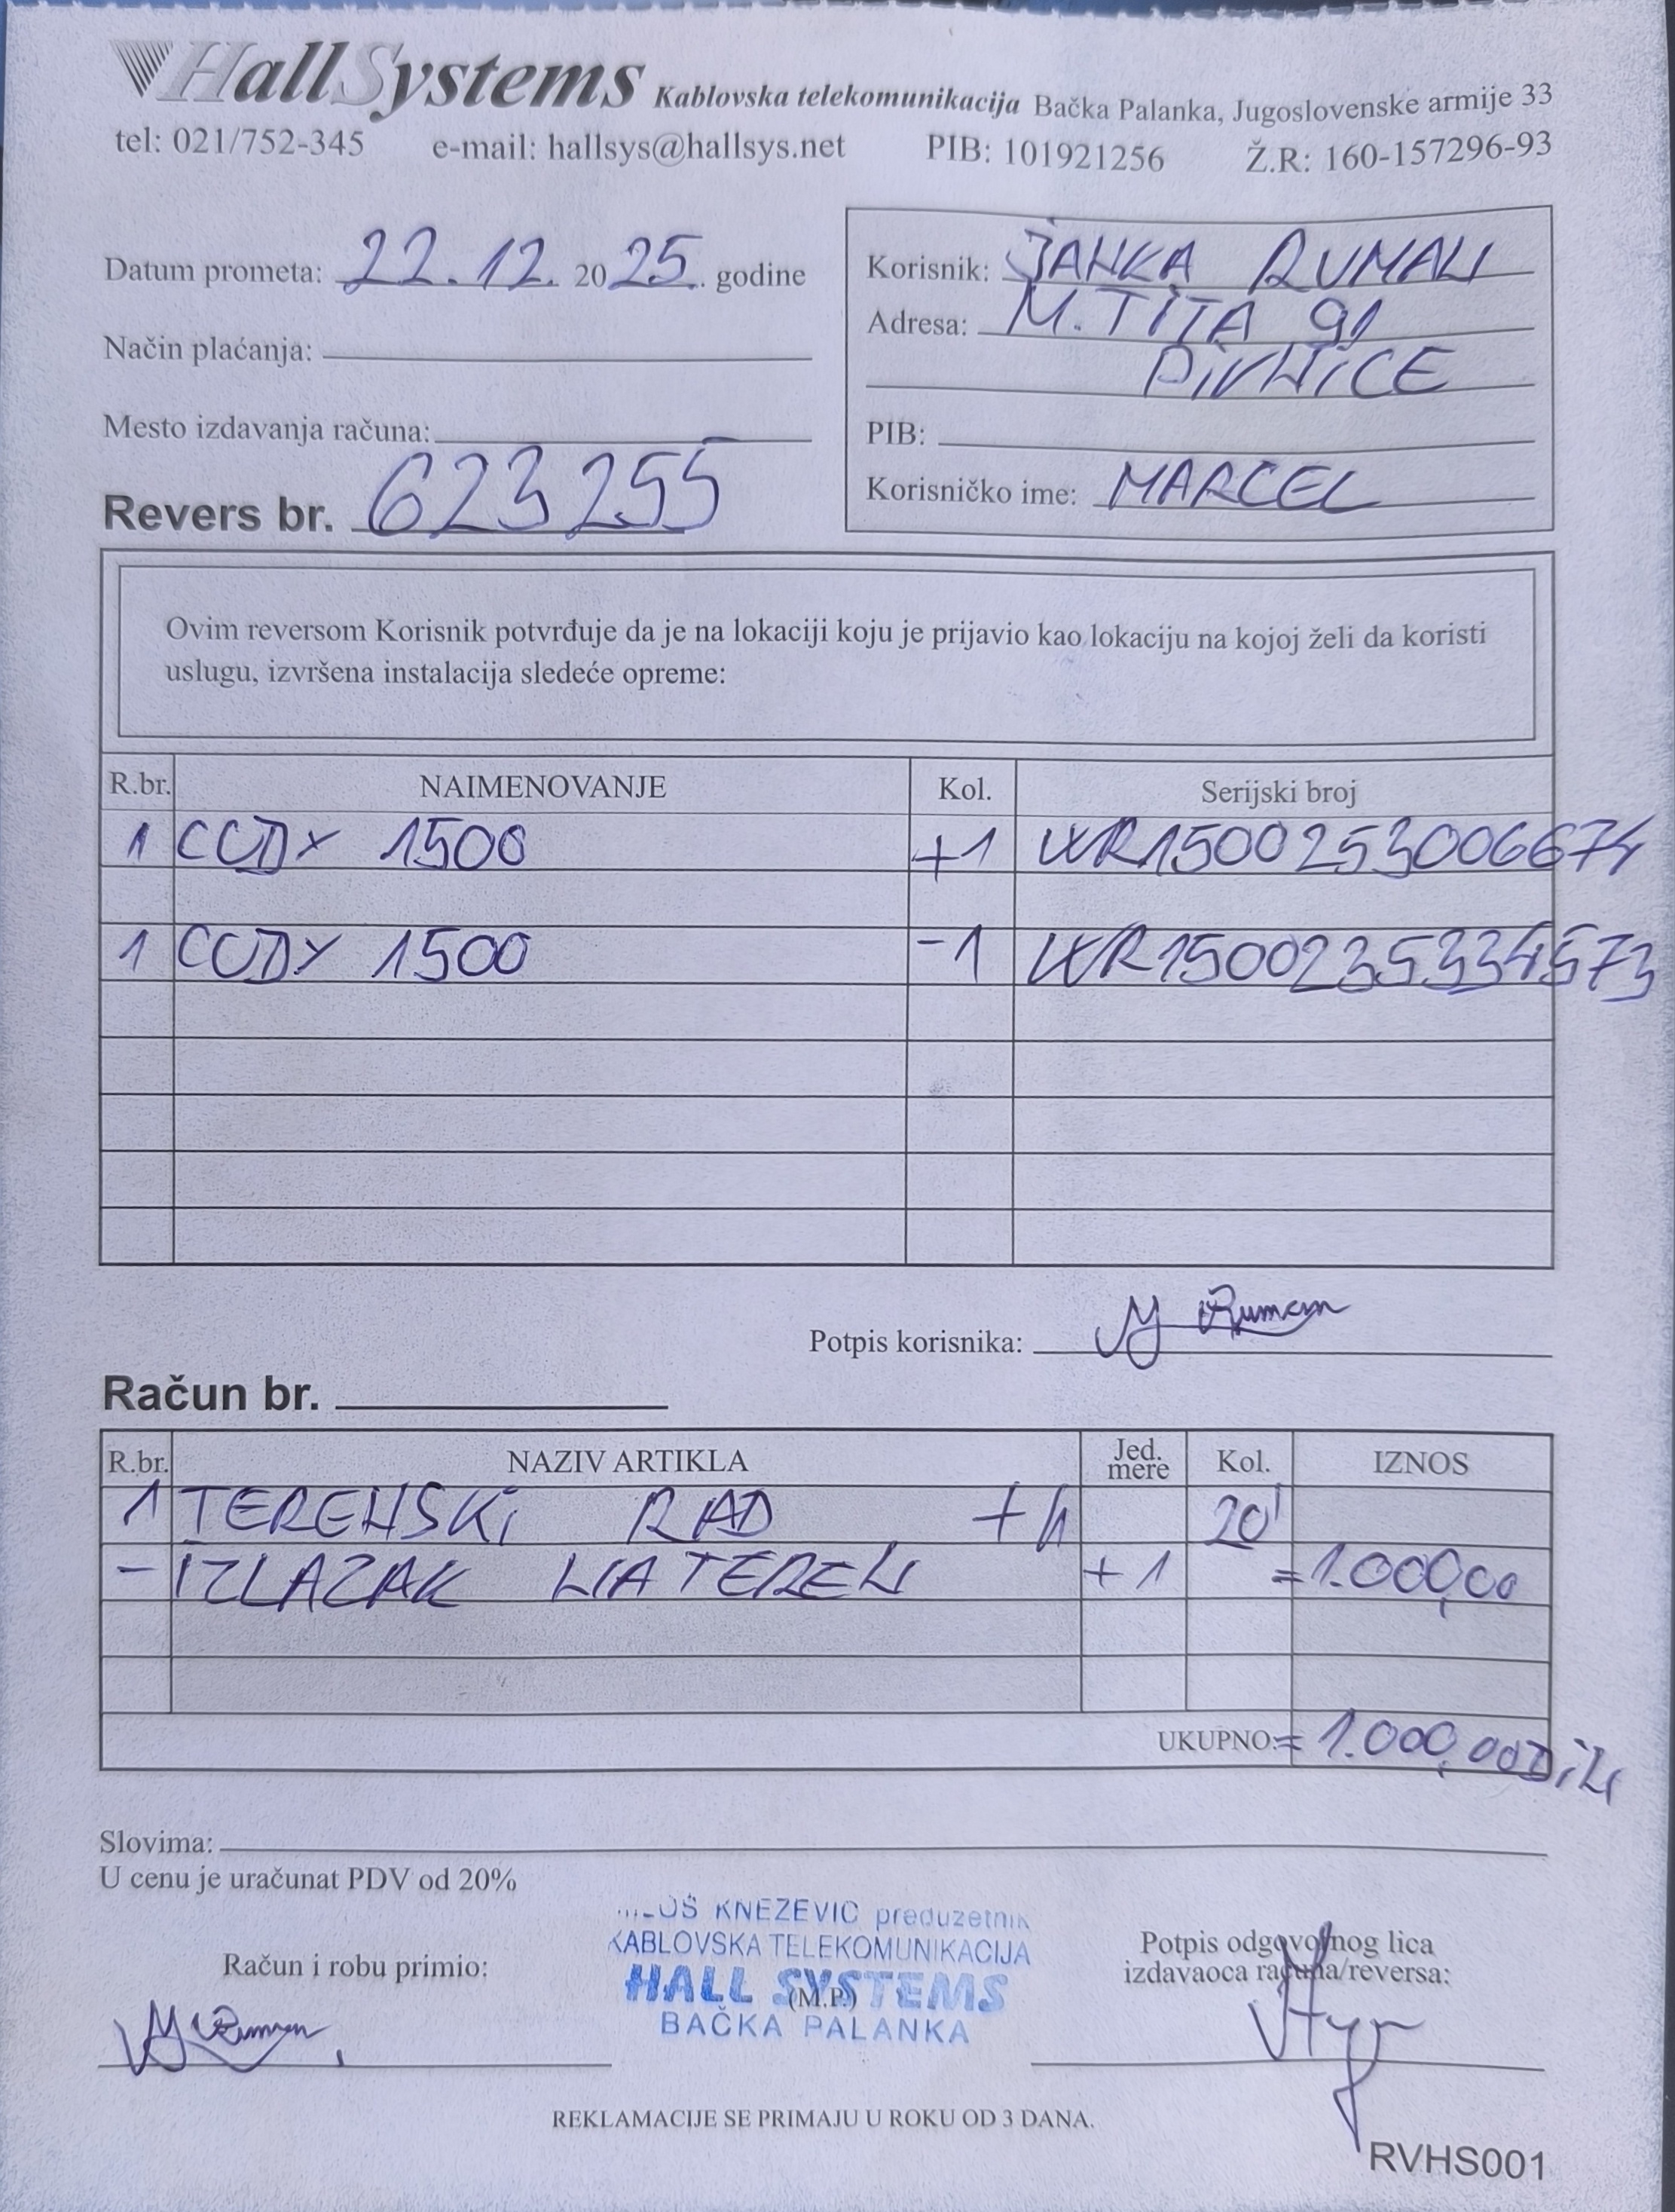 HallSystems Kablovska telekomunikacija Bačka Palanka, Jugoslovenske armije 33
tel: 021/752-345 e-mail: hallsys@hallsys.net PIB: 101921256 Ž.R: 160-157296-93
Datum prometa: 22.12. 2025. godine
Način plaćanja:
Mesto izdavanja računa:
Revers br. 623255
Korisnik: JANKA RUMAN
Adresa: M. TITA 91
PIVNICE
PIB:
Korisničko ime: MARCEL
Ovim reversom Korisnik potvrđuje da je na lokaciji koju je prijavio kao lokaciju na kojoj želi da koristi
uslugu, izvršena instalacija sledeće opreme:
R.br. NAIMENOVANJE Kol. Serijski broj
1 CUDY 1500 +1 WR1500253006674
1 CUDY 1500 -1 WR1500235334573
Potpis korisnika: Ruman
Račun br.
R.br. NAZIV ARTIKLA Jed. mere Kol. IZNOS
1 TERENSKI RAD +h 20'
- IZLAZAK NA TEREN +1 =1.000,00
UKUPNO: = 1.000,00 DIN
Slovima:
U cenu je uračunat PDV od 20%
KNEZEVIC preduzetnik
KABLOVSKA TELEKOMUNIKACIJA
HALL SYSTEMS
(M.P.)
BAČKA PALANKA
Račun i robu primio:
Ruman
Potpis odgovornog lica
izdavaoca računa/reversa:
REKLAMACIJE SE PRIMAJU U ROKU OD 3 DANA.
RVHS001